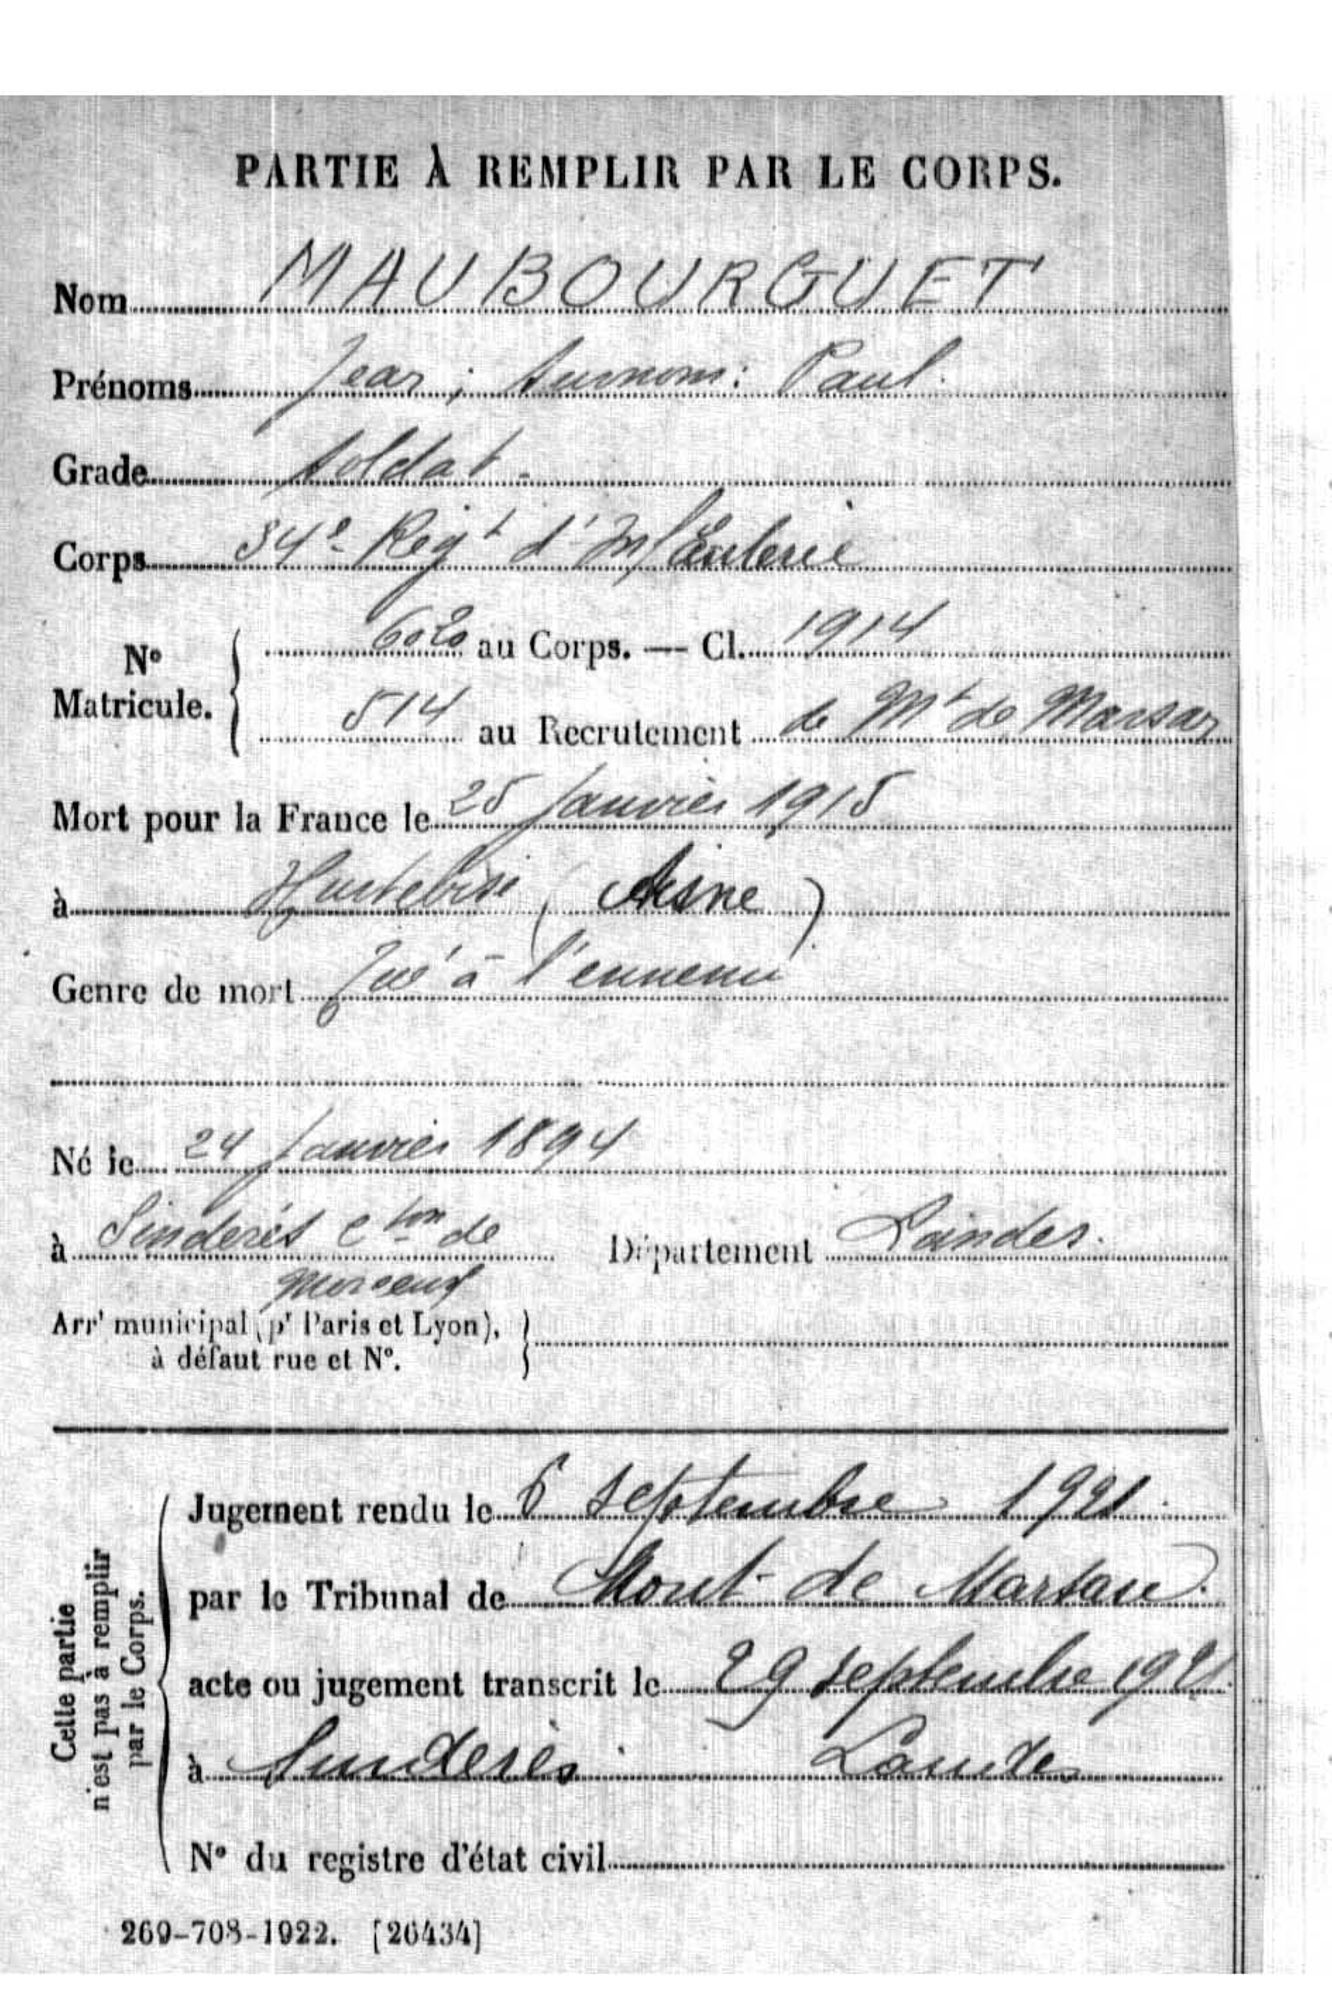 PARTIE À REMPLIR PAR LE CORPS.
Nom MAUBOURGUET
Prénoms Jean ; surnom : Paul.
Grade soldat -
Corps 34e Regt d'Infanterie
No Matricule. 6020 au Corps. — Cl. 1914
514 au Recrutement de Mt de Marsan
Mort pour la France le 25 Janvier 1915
à Hurtebise (Aisne)
Genre de mort Tué à l'ennemi
Né le 24 Janvier 1894
à Sinderès Cton de Morcenx Département Landes.
Arrt municipal (pr Paris et Lyon), à défaut rue et No.
Cette partie n'est pas à remplir par le Corps.
Jugement rendu le 6 septembre 1921.
par le Tribunal de Mont-de Marsan.
acte ou jugement transcrit le 29 septembre 1921.
à Sinderès Landes
No du registre d'état civil
269-708-1922. [26434]